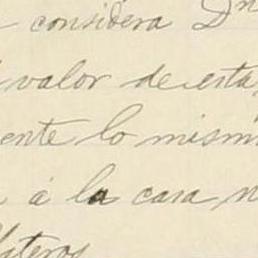 considera Dn
valor de esta
ente lo mism
á la casa n
lateros